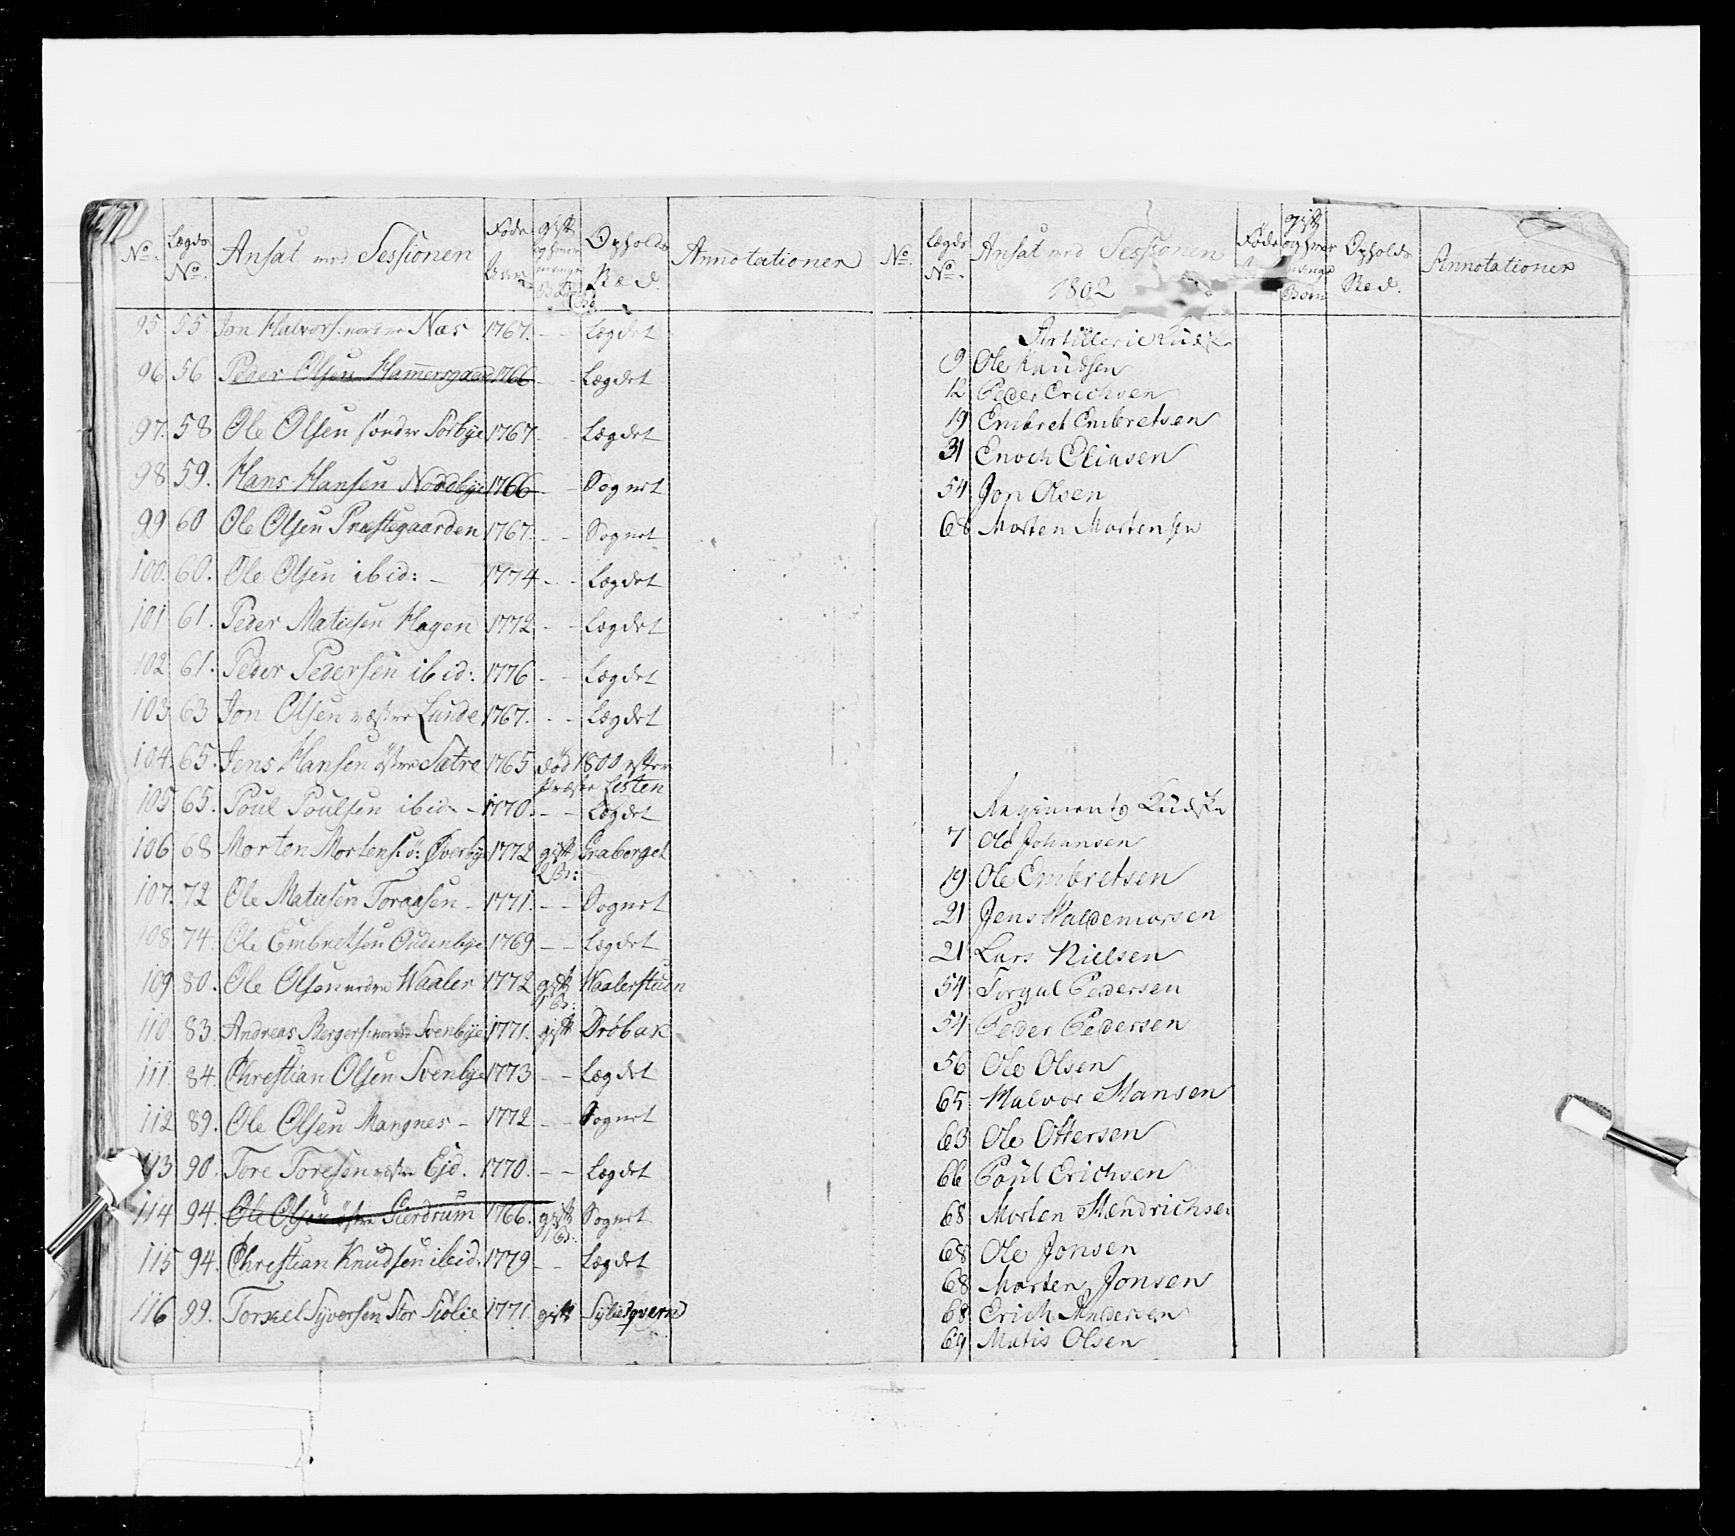 No. Lægds No. Ansat med Sessionen Føde Aar gift og hvor mange Børn Opholds Stæd. Annotationer
95 55. Jon Halvors: nordre Næs 1767. - - Lægdet
96 56 Peder Olsen Hammersgaard 1766 - - Lægdet
97. 58 Ole Olsen søndre Sørbye 1767 - - Lægdet
98 59. Hans Hansen Nordbye 1766 - - Sognet
99 60 Ole Olsen Præstegaarden 1767. - - Sognet
100. 60. Ole Olsen ibid: - 1774 - - Lægdet
101 61. Peder Matiesen Hagen 1772 - - Lægdet
102 61. Peder Pedersen ibid: 1776 - - Lægdet
103 63 Jon Olsen westre Lunde 1767. - - Lægdet
104. 65. Jens Hansen østre Sætre 1765 død 1800 efter
Præste Listen
105 65. Poul Poulsen ibid - 1770. - - Lægdet
106 68 Morten Mortens: s: Øverbye 1772 gift Graberget
2 Br:
107. 72 Ole Matiesen Toraasen - 1771. - - Sognet
108. 74. Ole Embretsen Oudenbye 1769 - - Lægdet
109 80. Ole Olsen nordre Waaler 1772 gift Waalerstuen
1 Br:
110 83. Andreas Bergers: nordre Svenbye 1771. gift Drøbak
111. 84. Christian Olsen Svenbye 1773 - - Lægdet
112 89. Ole Olsen Mangnes - 1772 - - Sognet
113 90. Tore Toresen westre Ejd. 1770. - - Lægdet
114 94. Ole Olsen østre Gierdrum 1766. gift Sognet
1 Br:
115 94. Christian Knudsen ibid. 1779 - - Lægdet
116 99. Torkel Syversen Stor Siølie 1771 gift
No. Lægds No. Ansat med Sessionen 1802 Føde gift og hvor mange Børn Opholds Stæd. Annotationer
Artillerie Kudske
9 Ole Knudsen
12 Peder Erichsen
19 Embret Embretsen
31 Enoch Eliasen
54 Jon Olsen
68 Morten Mortensen
Regiments Kudske
7 Ole Johansen
19 Ole Embretsen
21 Jens Waldemorsen
21 Lars Nielsen
54 Torgul Pedersen
54 Peder Pedersen
56 Ole Olsen
65 Halvor Hansen
63 Ole Ottersen
66 Poul Erichsen
68 Morten Hendrichsen
68 Ole Jonsen
68 Morten Jonsen
68 Erich Andersen
69 Matis Olsen